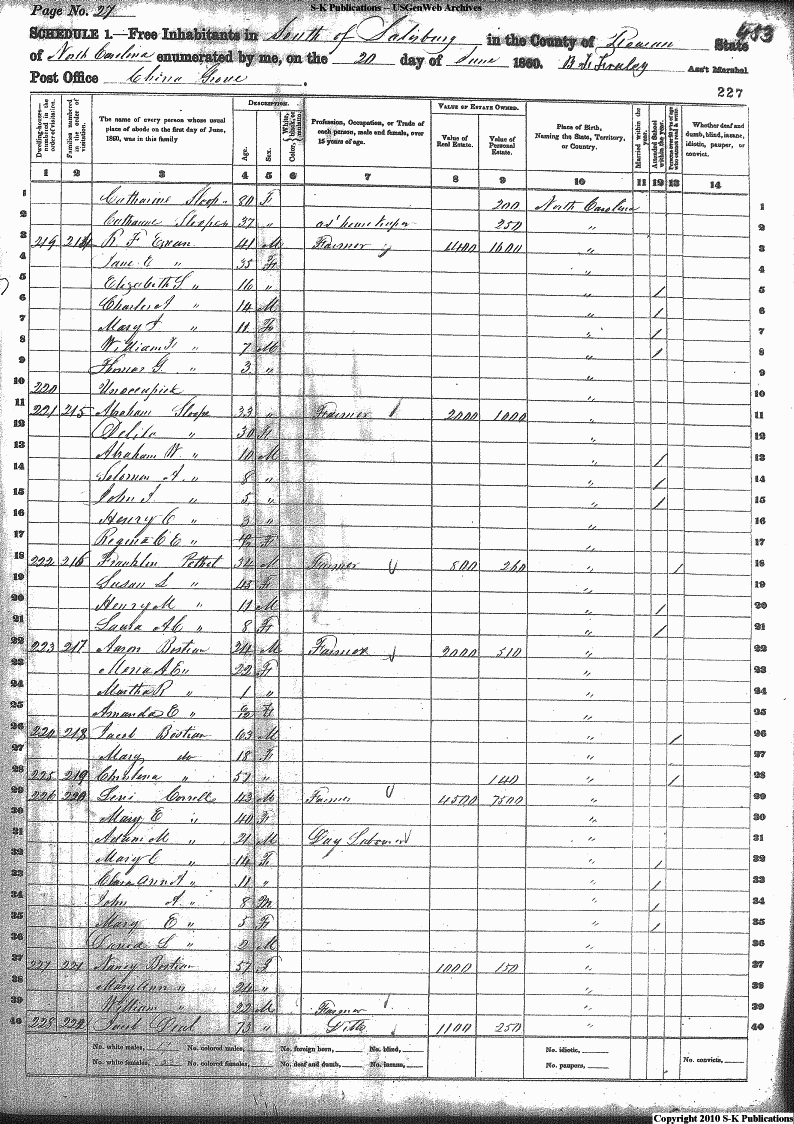 S-K Publications -- USGenWeb Archives
Page No. 27
483
SCHEDULE 1.—Free Inhabitants in South of Salsburg in the County of Rowan State
of North Carolina enumerated by me, on the 20 day of June 1860. Ass't Marshal
Post Office China Grove.
227
Dwelling-houses—numbered in the order of visitation.
Families numbered in the order of visitation.
The name of every person whose usual place of abode on the first day of June, 1860, was in this family
DESCRIPTION.
Age.
Sex.
Color, White, black, or mulatto.
Profession, Occupation, or Trade of each person, male and female, over 15 years of age.
VALUE OF ESTATE OWNED.
Value of Real Estate.
Value of Personal Estate.
Place of Birth, Naming the State, Territory, or Country.
Married within the year.
Attended School within the year.
Persons over 20 y'rs of age who cannot read & write.
Whether deaf and dumb, blind, insane, idiotic, pauper, or convict.
1 2 3 4 5 6 7 8 9 10 11 12 13 14
1 Catharine Sloop 80 F 200 North Carolina 1
2 Catharine Sloop 37 " 250 " 2
3 219 214 R F Ewan 41 M Farmer 4400 1600 " 3
4 Jane E " 35 F " 4
5 Elizabeth S " 16 " " / 5
6 Charles A " 14 M " / 6
7 Mary " 11 F " / 7
8 William F " 7 M " / 8
9 Thomas G. " 3 " " 9
10 220 Unoccupied " 10
11 221 215 Abraham Sloope 33 " Farmer 2000 1000 " 11
12 Delila " 30 F " 12
13 Abraham W " 10 M " / 13
14 Solomon A. " 8 " " / 14
15 John " 5 " " / 15
16 Henry C " 3 " " 16
17 Regina C E " F " 17
18 222 216 Franklin Pethel 34 M Farmer 800 260 " / 18
19 Susan S " 45 F " 19
20 Henry M " 11 M " / 20
21 Laura A C " 8 F " / 21
22 223 217 Aaron Bostian 24 M Farmer 2000 510 " 22
23 22 F " 23
24 Martha R " 1 " " 24
25 Amanda E " F " 25
26 224 218 Jacob Bostian 63 M " / 26
27 Mary do 18 F " 27
28 225 219 Christena " 57 " 140 " / 28
29 226 220 Levi Correll 43 M Farmer 4500 7500 " 29
30 Mary E " 40 F " 30
31 Adam M " 21 M Day Laborer " 31
32 Mary C " 14 F " / 32
33 Ann A " 11 " " / 33
34 John A " 8 M " / 34
35 Mary E " 5 F " / 35
36 David S " 2 M " 36
37 227 221 Nancy Bostian 57 F 1000 150 " 37
38 Mary Ann " 24 " " 38
39 William " 22 M Farmer " 39
40 228 222 Jacob 73 " Ditto 1100 250 " 40
No. white males, No. colored males, No. foreign born, No. blind, No. idiotic, No. convicts,
No. white females, No. colored females, No. deaf and dumb, No. insane, No. paupers,
Copyright 2010 S-K Publications